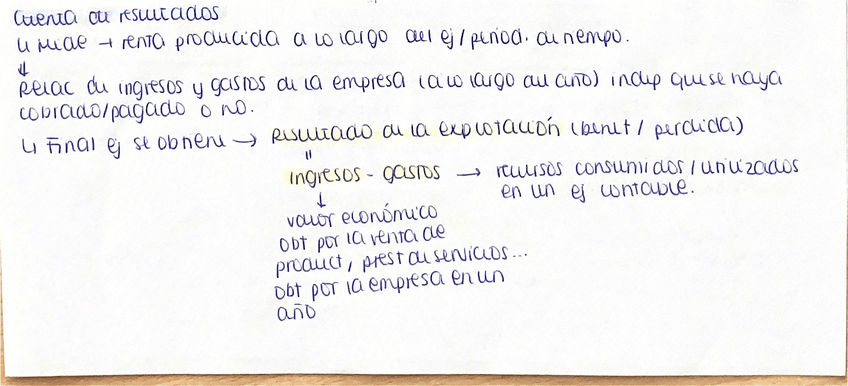 Cuenta de resultados
↳ Mide → renta producida a lo largo del ej/period. de tiempo.
↓
Relac de ingresos y gastos de la empresa (a lo largo del año) indep que se haya
cobrado/pagado o no.
↳ Final ej se obtiene → Resultado de la explotación (benef / perdida)
=
ingresos - gastos → recursos consumidos/utilizados
en un ej contable.
↓
valor económico
obt por la venta de
product, prest de servicios...
obt por la empresa en un
año